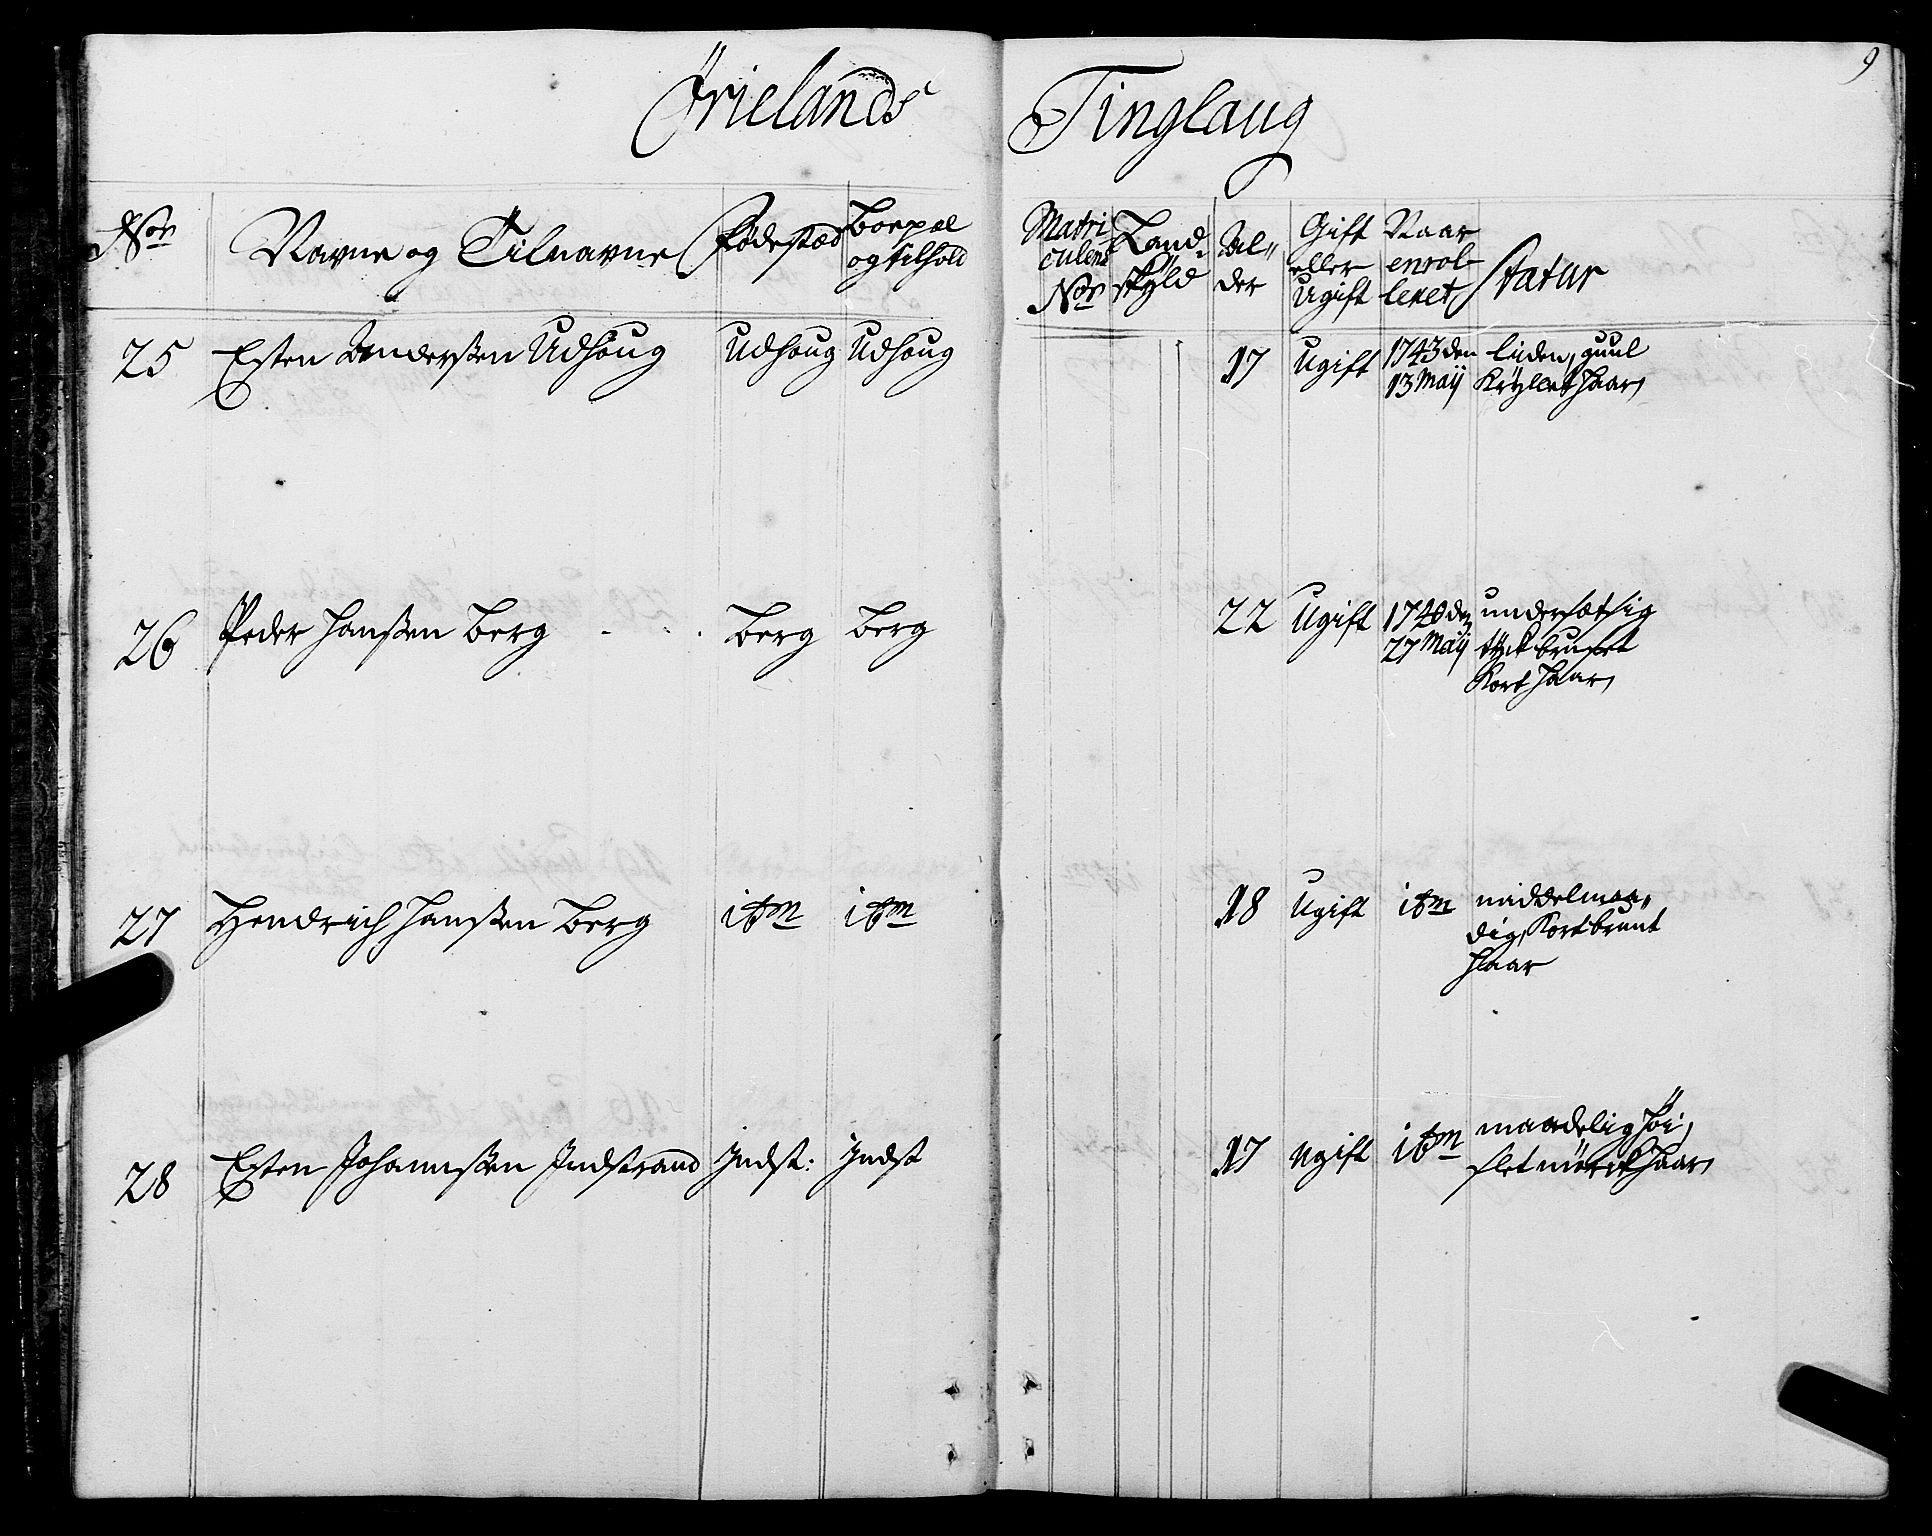 Ørielands Tinglaug
9
No
Navne og Tilnavne
Fødestæd
Boepæl
og tilhold
Matri
culens
No
Land-
skyld
Al-
der
Gift
eller
Ugift
Naar
enrol-
leret
Statur
25 Esten Anderssen Udhoug Udhoug Udhoug 17 Ugift 1743 den
13 Maij
liden, guul
Krÿllet haar,
26 Peder Hanssen Berg Berg Berg 22 Ugift 1740 den
27 Maij
undersætsig
tÿck brunet
Kort haar,
27 Hendrich Hanssen Berg itm itm 18 Ugift itm
middelmaa-
dig, Kort brunt
haar
28 Esten Johannssen Indstrand Indst: Indst 17 Ugift itm
maadelig høi,
slet mörck haar,